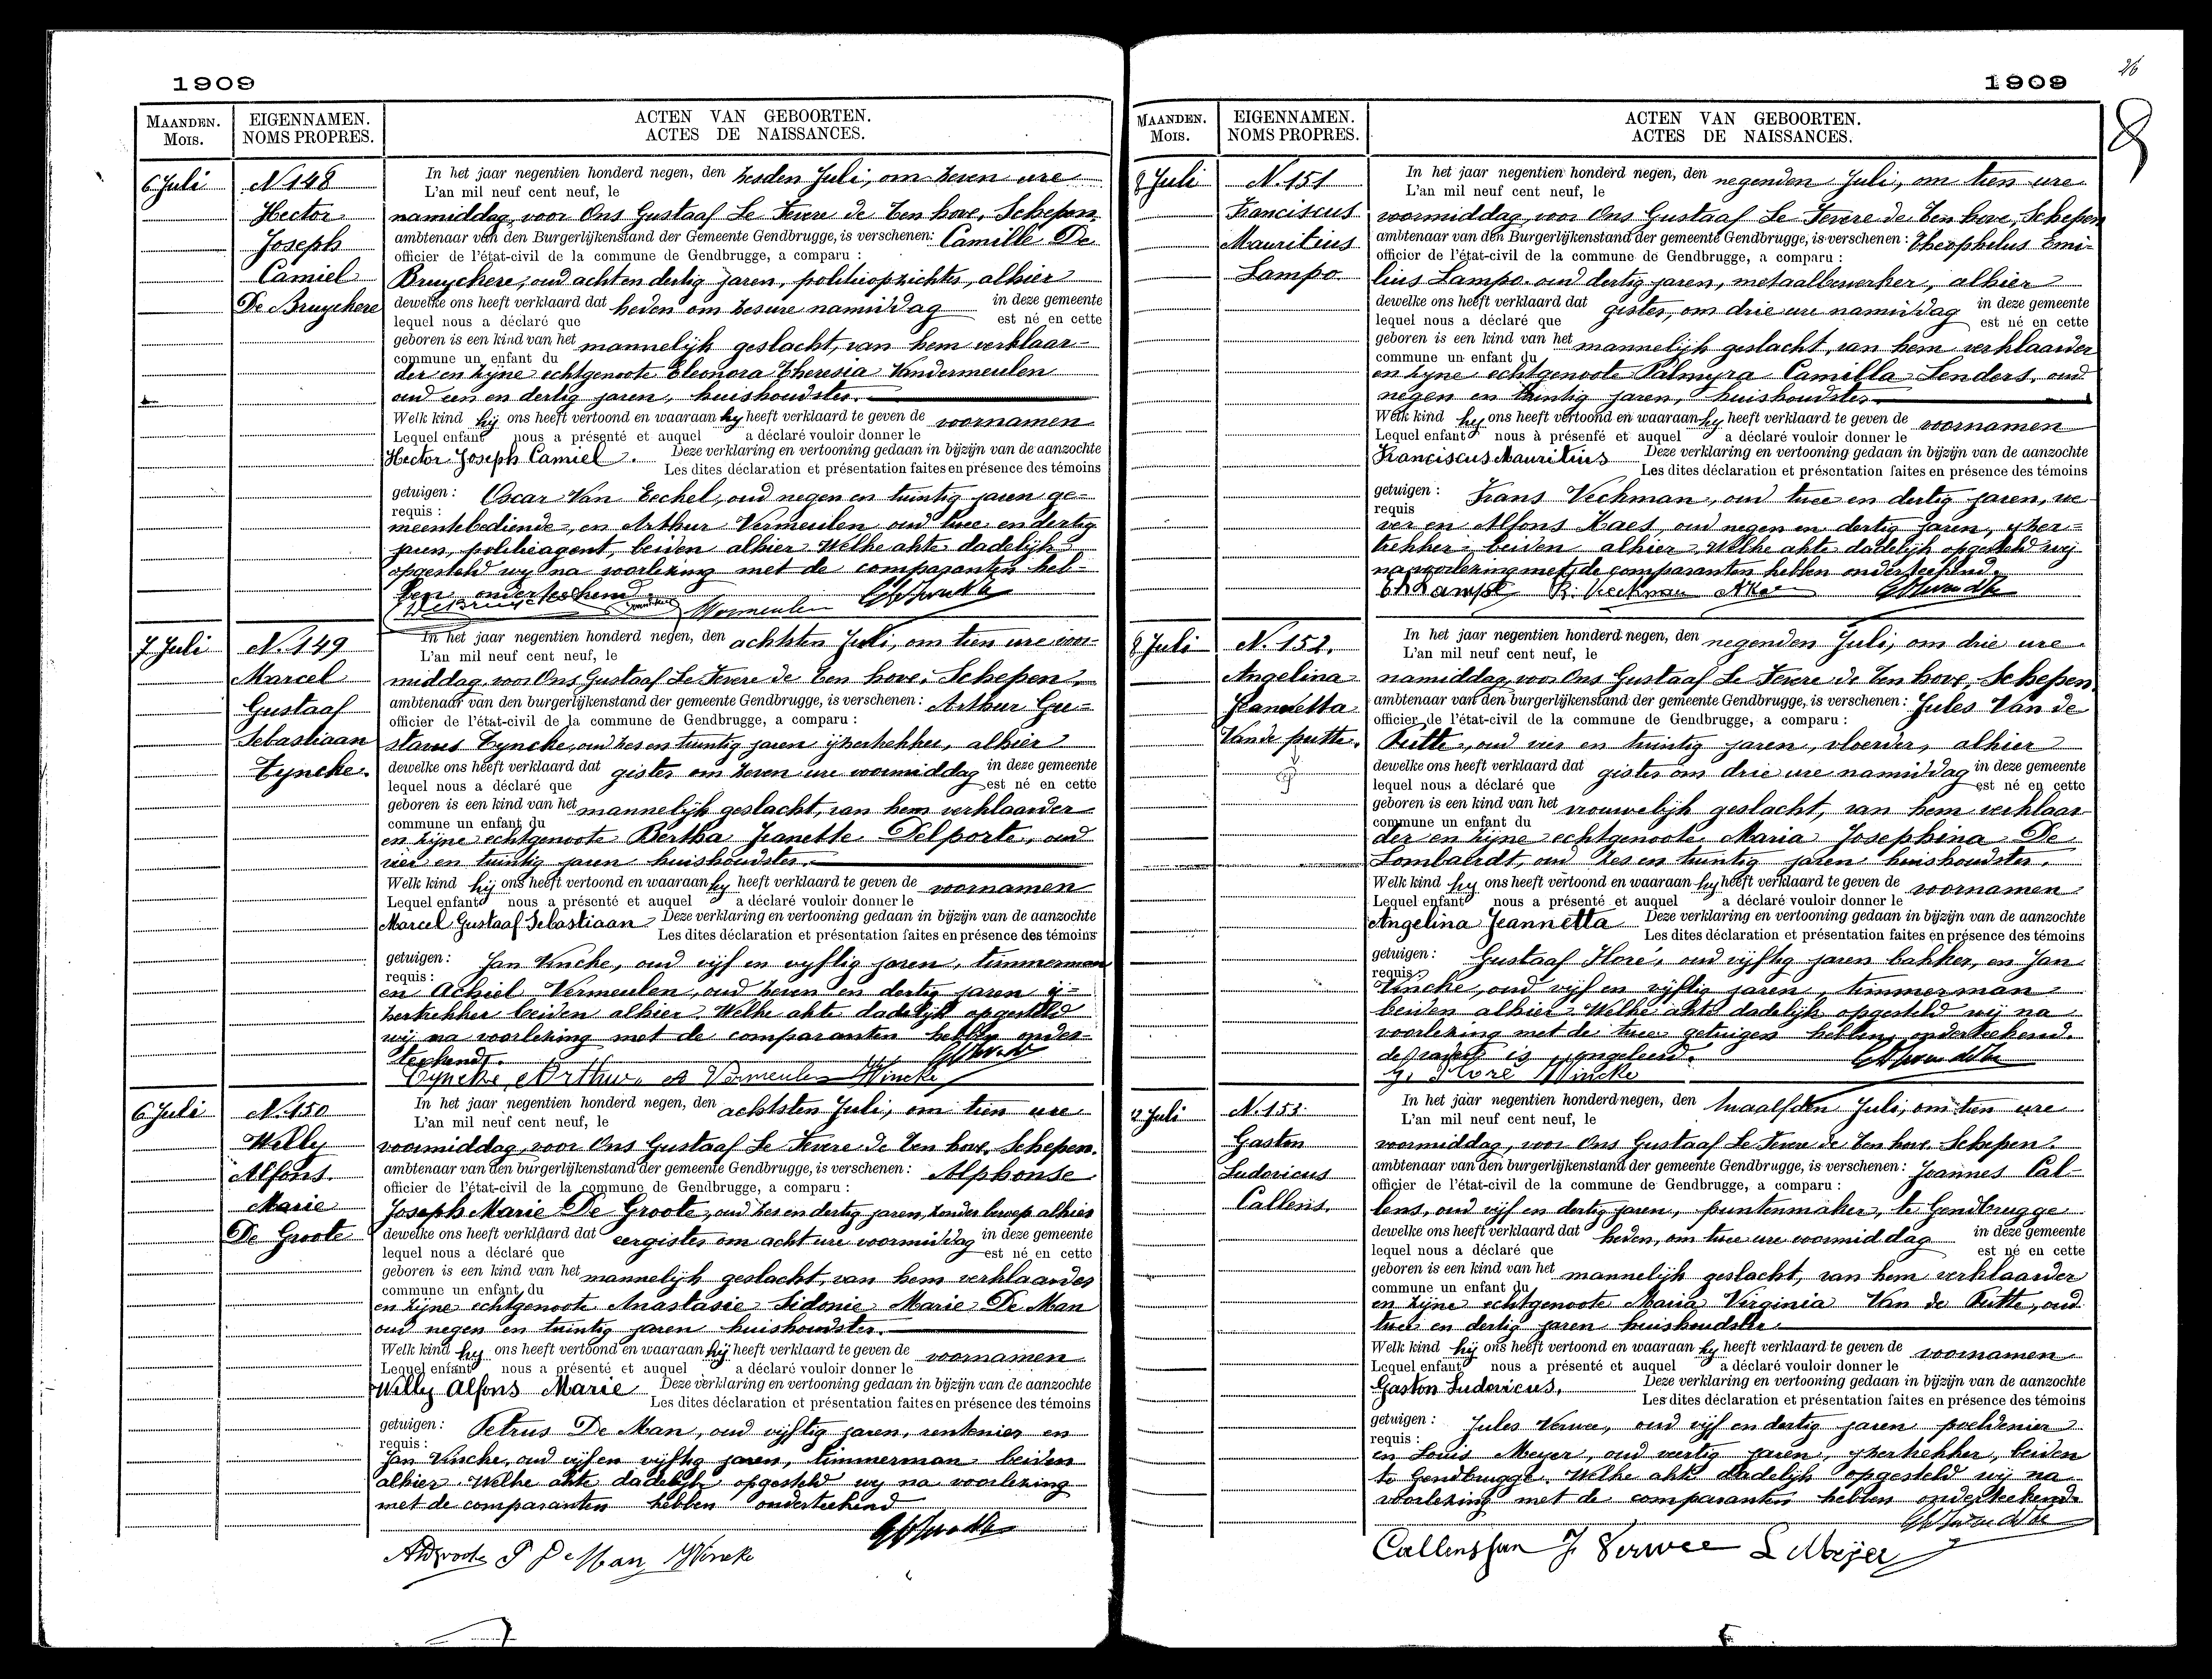 1909
MAANDEN.
Mois.
EIGENNAMEN.
NOMS PROPRES.
ACTEN VAN GEBOORTEN.
ACTES DE NAISSANCES.
6 Juli
N. 148
Hector
Joseph
Camiel
De Bruyckere
In het jaar negentien honderd negen, den zesden Juli, om zeven ure
L'an mil neuf cent neuf, le
namiddag, voor Ons Gustaaf Le Fevere de Ten hove, Schepen
ambtenaar van den Burgerlijkenstand der Gemeente Gendbrugge, is verschenen: Camille De
officier de l'état-civil de la commune de Gendbrugge, a comparu :
Bruyckere, oud acht en dertig jaren, politieopzichter, alhier
dewelke ons heeft verklaard dat heden om zes ure namiddag in deze gemeente
lequel nous a déclaré que est né en cette
geboren is een kind van het mannelijk geslacht, van hem verklaar-
commune un enfant du
der en zijne echtgenoote Eleonora Theresia Vandermeulen
oud een en dertig jaren, huishoudster.
Welk kind hij ons heeft vertoond en waaraan hy heeft verklaard te geven de voornamen
Lequel enfant nous a présenté et auquel a déclaré vouloir donner le
Hector Joseph Camiel. Deze verklaring en vertooning gedaan in bijzijn van de aanzochte
Les dites déclaration et présentation faites en présence des témoins
getuigen : Oscar Van Eeckel, oud negen en twintig jaren ge=
requis :
meentebediende, en Arthur Vermeulen oud twee en dertig
jaren, politieagent, beiden alhier. Welke akte dadelijk
opgesteld wij na voorlezing met de comparanten heb-
ben onderteekend.
Vermeulen
7 Juli
N. 149
Marcel
Gustaaf
Sebastiaan
Tyncke.
In het jaar negentien honderd negen, den achtsten Juli, om tien ure voor-
L'an mil neuf cent neuf, le
middag, voor Ons Gustaaf Le Fevere de Ten hove, Schepen,
ambtenaar van den burgerlijkenstand der gemeente Gendbrugge, is verschenen: Arthur Gu=
officier de l'état-civil de la commune de Gendbrugge, a comparu :
stavus Tyncke, oud zes en twintig jaren ijzertrekker, alhier
dewelke ons heeft verklaard dat gister om zeven ure voormiddag in deze gemeente
lequel nous a déclaré que est né en cette
geboren is een kind van het mannelijk geslacht, van hem verklaarder
commune un enfant du
en zijne echtgenoote Bertha Jeanette Delporte, oud
vier en twintig jaren huishoudster.
Welk kind hij ons heeft vertoond en waaraan hy heeft verklaard te geven de voornamen
Lequel enfant nous a présenté et auquel a déclaré vouloir donner le
Marcel Gustaaf Sebastiaan Deze verklaring en vertooning gedaan in bijzijn van de aanzochte
Les dites déclaration et présentation faites en présence des témoins
getuigen : Jan Vincke, oud vijf en vyftig jaren, timmerman
requis :
en Achiel Vermeulen, oud zeven en dertig jaren ij=
zertrekker beiden alhier. Welke akte dadelijk opgesteld
wij na voorlezing met de comparanten hebben onder-
teekend.
Tyncke Arthur A Vermeulen JVincke
6 Juli
N. 150
Willy
Alfons
Marie
De Groote
In het jaar negentien honderd negen, den achtsten Juli, om tien ure
L'an mil neuf cent neuf, le
voormiddag, voor Ons Gustaaf Le Fevere de Ten hove, Schepen.
ambtenaar van den burgerlijkenstand der gemeente Gendbrugge, is verschenen: Alphonse
officier de l'état-civil de la commune de Gendbrugge, a comparu :
Joseph Marie De Groote, oud zes en dertig jaren, zonder beroep alhier
dewelke ons heeft verklaard dat eergister om acht ure voormiddag in deze gemeente
lequel nous a déclaré que est né en cette
geboren is een kind van het mannelijk geslacht, van hem verklaarder
commune un enfant du
en zijne echtgenoote Anastasie Sidonie Marie De Man
oud negen en twintig jaren huishoudster.
Welk kind hy ons heeft vertoond en waaraan hij heeft verklaard te geven de voornamen
Lequel enfant nous a présenté et auquel a déclaré vouloir donner le
Willy Alfons Marie Deze verklaring en vertooning gedaan in bijzijn van de aanzochte
Les dites déclaration et présentation faites en présence des témoins
getuigen : Petrus De Man, oud vijftig jaren, rentenier en
requis :
Jan Vincke, oud vijf en vijftig jaren, timmerman beiden
alhier. Welke akte dadelijk opgesteld wy na voorlezing
met de comparanten hebben onderteekend
ADgroote P De Man JVincke
26
1909
8
MAANDEN.
Mois.
EIGENNAMEN.
NOMS PROPRES.
ACTEN VAN GEBOORTEN.
ACTES DE NAISSANCES.
8 Juli
N. 151
Franciscus
Mauritius
Lampo.
In het jaar negentien honderd negen, den negenden Juli, om tien ure
L'an mil neuf cent neuf, le
voormiddag, voor Ons Gustaaf Le Fevere de Ten hove, Schepen
ambtenaar van den Burgerlijkenstand der gemeente Gendbrugge, is verschenen: Theophilus Emi-
officier de l'état-civil de la commune de Gendbrugge, a comparu :
lius Lampo. oud dertig jaren, metaalbewerker, alhier
dewelke ons heeft verklaard dat gister, om drie ure namiddag in deze gemeente
lequel nous a déclaré que est né en cette
geboren is een kind van het mannelijk geslacht, van hem verklaarder
commune un enfant du
en zijne echtgenoote Palmyra Camilla Lenders, oud
negen en twintig jaren, huishoudster.
Welk kind hy ons heeft vertoond en waaraan hy heeft verklaard te geven de voornamen
Lequel enfant nous à présenté et auquel a déclaré vouloir donner le
Franciscus Mauritius Deze verklaring en vertooning gedaan in bijzijn van de aanzochte
Les dites déclaration et présentation faites en présence des témoins
getuigen : Frans Veckman, oud twee en dertig jaren, we
requis
ver en Alfons Kaes, oud negen en dertig jaren, yzer=
trekker beiden alhier. Welke akte dadelijk opgesteld wij
na voorlezing met de comparanten hebben onderteekend.
Th Lampo
8 Juli
N. 152.
Angelina
Jeannetta
Vande putte.
In het jaar negentien honderd negen, den negenden Juli, om drie ure
L'an mil neuf cent neuf, le
namiddag, voor Ons Gustaaf Le Fevere de Ten hove, Schepen.
ambtenaar van den burgerlijkenstand der gemeente Gendbrugge, is verschenen: Jules Van de
officier de l'état-civil de la commune de Gendbrugge, a comparu :
Putte, oud vier en twintig jaren, vloerder, alhier
dewelke ons heeft verklaard dat gister om drie ure namiddag in deze gemeente
lequel nous a déclaré que est né en cette
geboren is een kind van het vrouwelijk geslacht, van hem verklaar
commune un enfant du
der en zijne echtgenoote Maria Josephina De
Lombaerdt, oud zes en twintig jaren huishoudster.
Welk kind hy ons heeft vertoond en waaraan hy heeft verklaard te geven de voornamen
Lequel enfant nous a présenté et auquel a déclaré vouloir donner le
Angelina Jeannetta Deze verklaring en vertooning gedaan in bijzijn van de aanzochte
Les dites déclaration et présentation faites en présence des témoins
getuigen : Gustaaf Floré, oud vijftig jaren bakker, en Jan
requis :
Vincke, oud vijf en vijftig jaren, timmerman
beiden alhier. Welke akte dadelijk opgesteld wij na
voorlezing met de twee getuigen hebben onderteekend.
de vader is ongeleerd.
G. Flore JVincke
12 Juli
N. 153
Gaston
Ludovicus
Callens.
In het jaar negentien honderd negen, den twaalfden Juli, om tien ure
L'an mil neuf cent neuf, le
voormiddag, voor Ons Gustaaf Le Fevere de Ten hove, Schepen.
ambtenaar van den burgerlijkenstand der gemeente Gendbrugge, is verschenen: Joannes Cal-
officier de l'état-civil de la commune de Gendbrugge, a comparu :
lens, oud vijf en dertig jaren, puntenmaker, te Gendbrugge
dewelke ons heeft verklaard dat heden, om twee ure voormiddag in deze gemeente
lequel nous a déclaré que est né en cette
geboren is een kind van het mannelijk geslacht, van hem verklaarder
commune un enfant du
en zijne echtgenoote Maria Virginia Van de Putte, oud
twee en dertig jaren huishoudster
Welk kind hij ons heeft vertoond en waaraan hy heeft verklaard te geven de voornamen
Lequel enfant nous a présenté et auquel a déclaré vouloir donner le
Gaston Ludovicus. Deze verklaring en vertooning gedaan in bijzijn van de aanzochte
Les dites déclaration et présentation faites en présence des témoins
getuigen : Jules Verwee, oud vijf en dertig jaren poeldenier
requis :
en Louis Meyer, oud veertig jaren, yzertrekker, beiden
te Gendbrugge. Welke akte dadelijk opgesteld wij na
voorlezing met de comparanten hebben onderteekend.
Callens Jan J. Verwee L Meijer